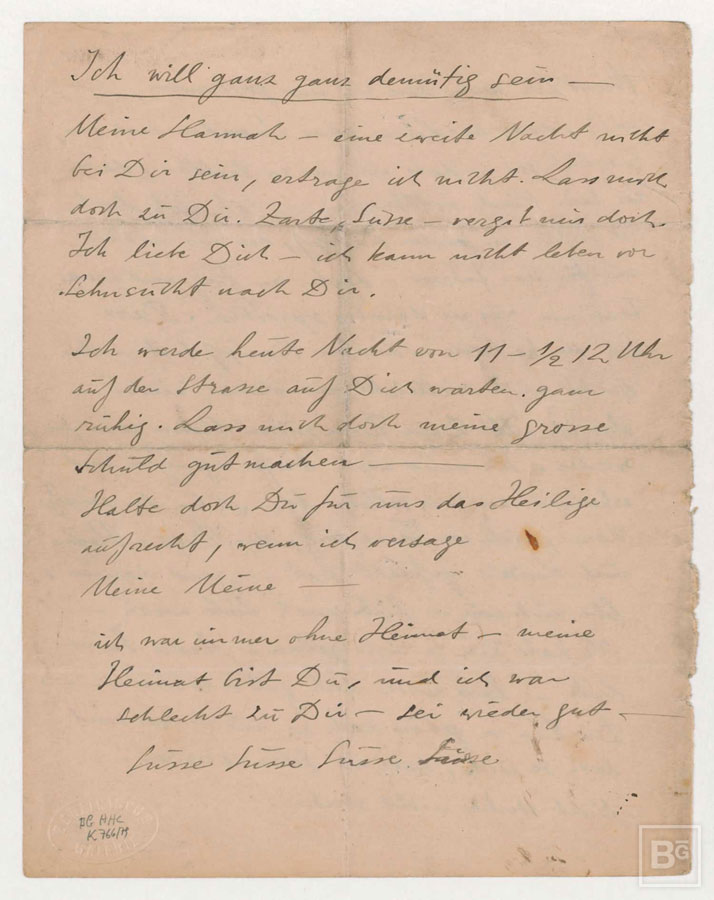 Ich will ganz ganz demütig sein —
Meine Hannah — eine zweite Nacht nicht
bei Dir sein, ertrage ich nicht. Lass mich
doch zu Dir. Zarte, Süsse — vergib mir doch.
Ich liebe Dich — ich kann nicht leben vor
Sehnsucht nach Dir.
Ich werde heute Nacht von 11 – ½ 12 Uhr
auf der Strasse auf Dich warten. ganz
ruhig. Lass mich doch meine grosse
Schuld gutmachen —
Halte doch Du für uns das Heilige
aufrecht, wenn ich versage
Meine Meine —
ich war immer ohne Heimat — meine
Heimat bist Du, und ich war
schlecht zu Dir — sei wieder gut —
Süsse Süsse Süsse Süsse
BG HHC
K 766/79
BG